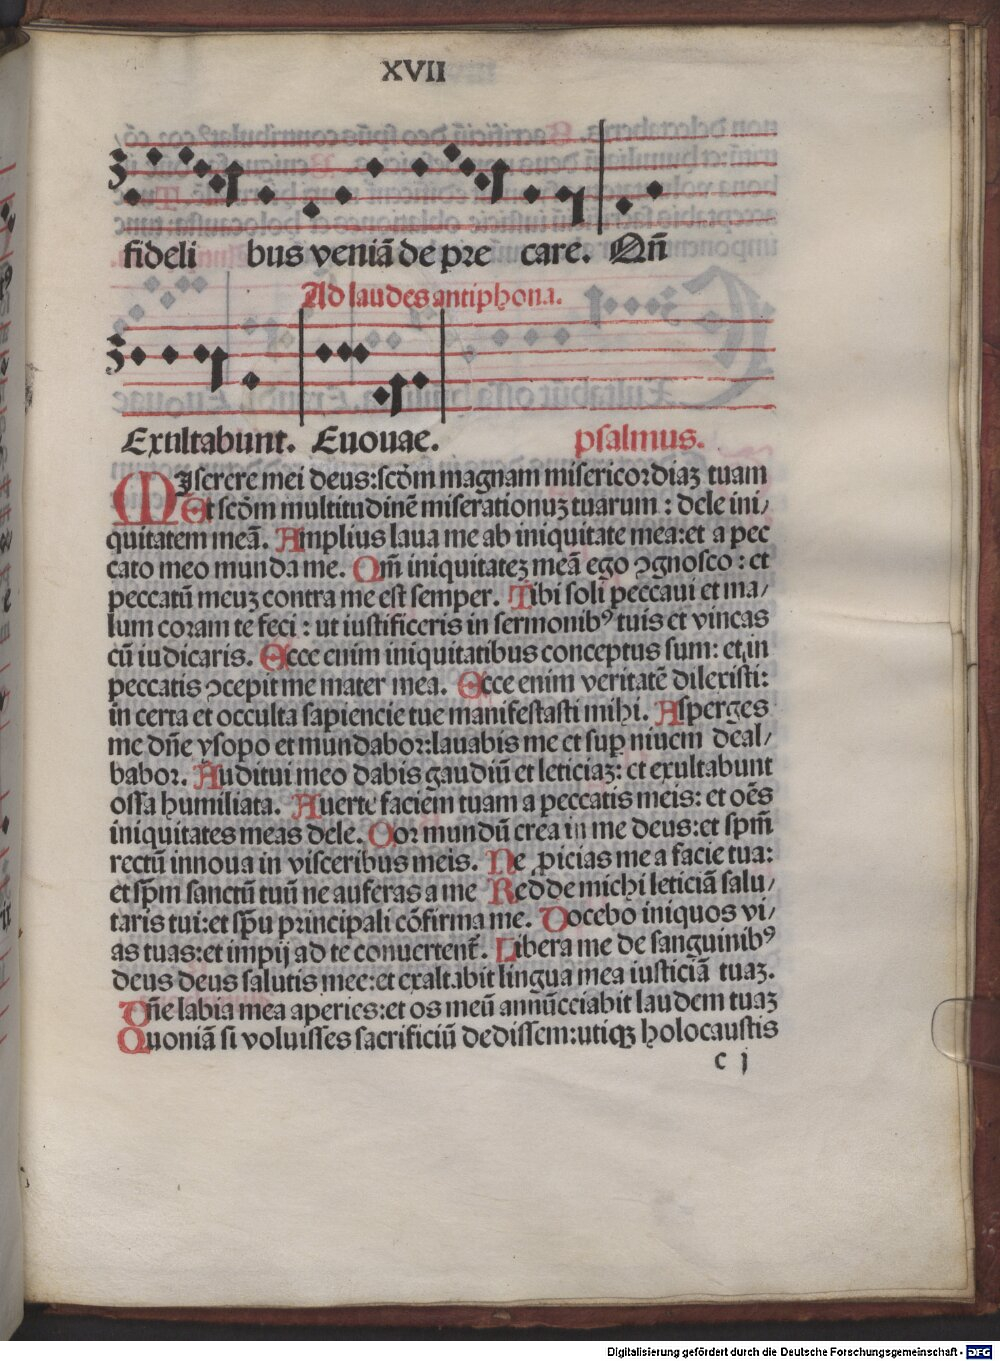 XVII
fideli bus veniā de pre care. Qn̄
Ad laudes antiphona.
Exultabunt. Euouae. psalmus.
MIserere mei deus:scōm magnam misericordiaz tuam
Et scōm multitudinē miserationuz tuarum : dele ini/
quitatem meā. Amplius laua me ab iniquitate mea:et a pec
cato meo munda me. Qm̄ iniquitatez meā ego ꝯgnosco : et
peccatū meuz contra me est semper. Tibi soli peccaui et ma/
lum coram te feci : ut iustificeris in sermonibꝰ tuis et vincas
cū iudicaris. Ecce enim iniquitatibus conceptus sum: et in
peccatis ꝯcepit me mater mea. Ecce enim veritatē dilexisti:
in certa et occulta sapiencie tue manifestasti mihi. Asperges
me dn̄e ysopo et mundabor:lauabis me et suꝑ niuem deal/
babor. Auditui meo dabis gaudiū et leticiaz: et exultabunt
ossa humiliata. Auerte faciem tuam a peccatis meis: et oēs
iniquitates meas dele. Cor mundū crea in me deus:et spm̄
rectū innoua in visceribus meis. Ne ꝓicias me a facie tua:
et spm̄ sanctū tuū ne auferas a me Redde michi leticiā salu/
taris tui:et spū principali cōfirma me. Docebo iniquos vi/
as tuas:et impij ad te conuertent̄. Libera me de sanguinibꝰ
deus deus salutis mee:et exaltabit lingua mea iusticiā tuaz.
Dn̄e labia mea aperies:et os meū annūcciabit laudem tuaz
Quoniā si voluisses sacrificiū dedissem:utiqꝫ holocaustis
c j
Digitalisierung gefördert durch die Deutsche Forschungsgemeinschaft - DFG